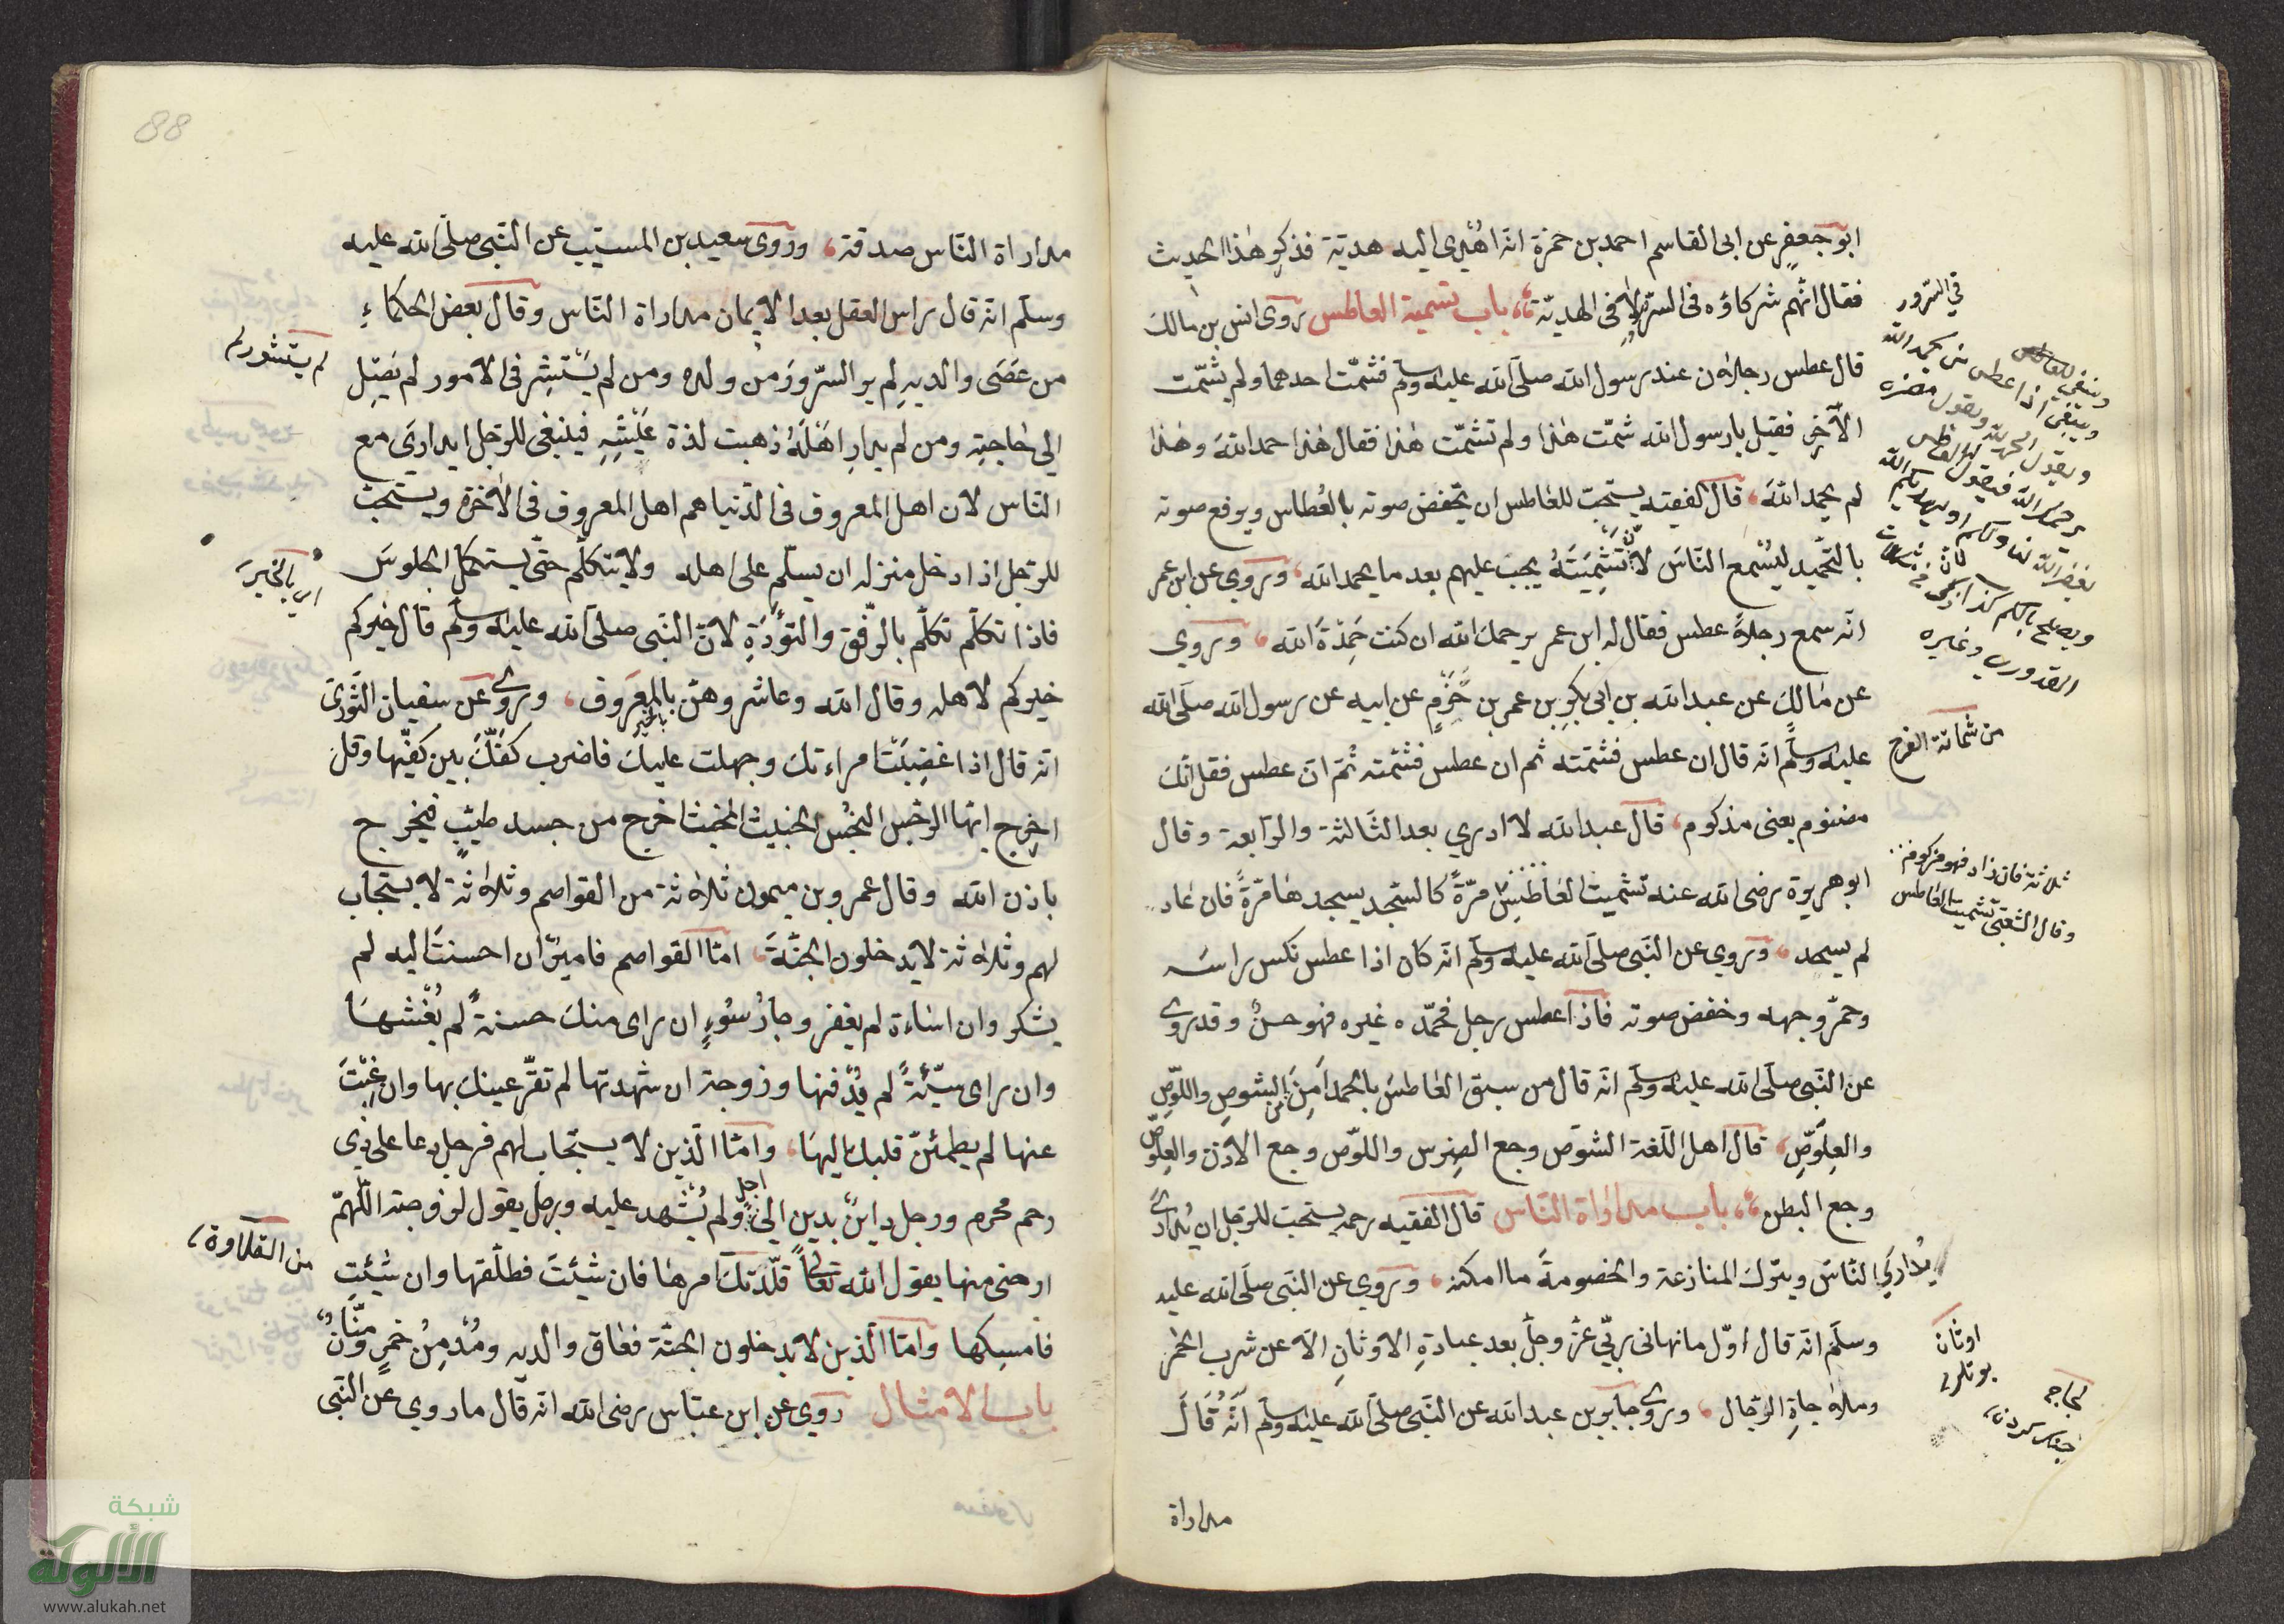 ابو جعفر عن ابى القاسم احمد بن حمزة انه اهدى اليه هدية فذكر هذا الحديث
فقال انهم شركاؤه فى السرور لا فى الهدية باب تشميت العاطس روى انس بن مالك
قال عطس رجلان عند رسول الله صلى الله عليه وسلم فشمّت احدهما ولم يشمّت
الآخر فقيل يا رسول الله شمّت هذا ولم تشمّت هذا فقال هذا حمد الله وهذا
لم يحمد الله قال الفقيه يستحبّ للعاطس ان يخفض صوته بالعُطاس ويرفع صوته
بالتحميد ليُسْمع الناسَ لانّ تَشْمِيتَهُ يجب عليهم بعد ما يحمد الله وروى عن ابن عمر
انه سمع رجلاً عطس فقال له ابن عمر يرحمك الله ان كنت حَمِدْتَ الله وروي
عن مالك عن عبد الله بن ابى بكر بن عمر بن حَزْمٍ عن ابيه عن رسول الله صلى الله
عليه وسلم انه قال ان عطس فشمته ثم ان عطس فشمته ثم ان عطس فقل انك
مضنوم يعنى مذكوم قال عبد الله لا ادرى بعد الثالثة والرابعة وقال
ابو هريرة رضى الله عنه تشميت العاطس مرّةً كالسّجد يسجدها مرّةً فان عاد
لم يسجد وروي عن النبى صلى الله عليه وسلم انه كان اذا عطس نكس راسه
وخمّر وجهه وخفض صوته فاذا عطس رجل فحمّده غيره فهو حسنٌ وقد روى
عن النبى صلى الله عليه وسلم انه قال من سبق العاطسَ بالحمد اَمِنَ من الشوص واللوّص
والعِلَوّصِ قال اهل اللغة الشوص وجع الضِرس واللوّص وجع الاذن والعلوّص
وجع البطن باب مداراة الناس قال الفقيه رحمه يستحبّ للرجل ان يُدارى
يُدارِيَ الناسَ ويترك المنازعة والخصومة ما امكنه وروي عن النبى صلى الله عليه
وسلم انه قال اوّل ما نهانى ربّي عزّ وجلّ بعد عبادةِ الاوثانِ الاّ عن شرب الخمر
وملاحاةِ الرّجال وروى جابر بن عبد الله عن النبى صلى الله عليه وسلم انّه قال
مداراة
فى السرور
من شماتة الفرح
ثلاثة فان زاد فهو مزكوم
وقال الشعبى تشميت العاطس
اوثان
88
مداراة الناس صدقة وروى سعيد بن المسيّب عن النبى صلى الله عليه
وسلم انه قال راس العقل بعد الايمان مداراة الناس وقال بعض الحكماءِ
من عَصَى والديهِ لم ير السّرورَ مِن ولده ومن لم يَسْتَشِر فى الامور لم يَصِل
الي حاجتِه ومن لم يدارِ اَهْلَهُ ذهبت لذة عَيْشِهِ فينبغى للرجل ان يدارىَ مع
الناس لان اهل المعروف فى الدنيا هم اهل المعروف فى الآخرة ويستحبّ
للرجل اذا دخل منزله ان يسلّم على اهله ولا يتكلّم حتى يستكمل الجلوسَ
فاذا تكلّم تكلّم بالرّفق والتؤدَةِ لانّ النبى صلى الله عليه وسلم قال خيركم
خيركم لاهله وقال الله وعاشروهنّ بالمعروف وروى عن سفيان الثّوريّ
انه قال اذا غضِبَتْ امراءتك وجهلت عليك فاضرب كفّكَ بين كفّيها وقل
اخرج ايها الرجس النجس الخبيث المخبث اخرج من جسد طيّب فيخرج
باذن الله وقال عمرو بن ميمون ثلاثة من القواصم وثلاثةٌ لا يستجاب
لهم وثلاثة لا يدخلون الجنّةَ امّا القواصم فاميرٌ ان احسنتَ اليه لم
يشكر وان اساءة لم يغفر وجارُ سُوءٍ ان راى منك حسنةً لم يُفْشها
وان راى سيّئةً لم يَدْفنها وزوجة ان شهدتها لم تقرّ عينك بها وان غِبْتَ
عنها لم يطمئنّ قلبك اليها وامّا الذين لا يستجاب لهم فرجل دعا على ذى
رحم محرم ورجل داينَ بدين الى اجل ولم يُشْهد عليه ورجل يقول لزوجته اللّهمّ
ارحنى منها يقول الله تعالى قلّدتك امرها فان شيئتَ فطلّقها وان شيئتِ
فامسِكها وامّا الّذين لا يدخلون الجنّة فعاق والديه ومُدْمِنُ خمرٍ ومنّانٌ
باب الامثال روي عن ابن عبّاس رضى الله انه قال ما روي عن النّبى
لم يستشور لم